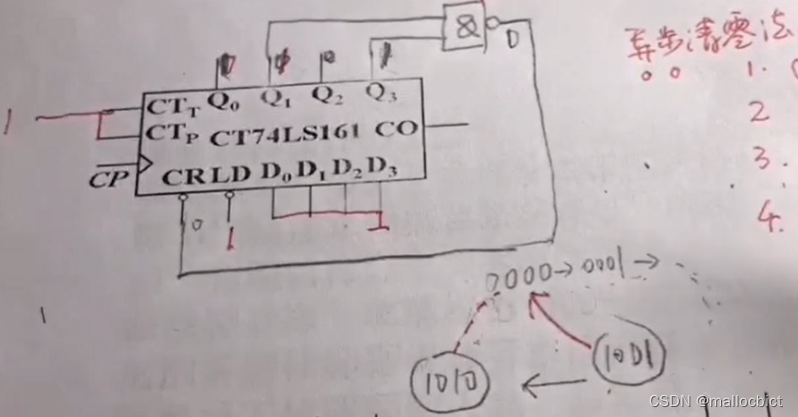 & 0
异步清零法
0 0 1.
2
3.
4.
1
CT_T Q₀ Q₁ Q₂ Q₃
CT_P CT74LS161 CO
CP CR LD D₀ D₁ D₂ D₃
0 1 1
0000→0001→
1010 ← 1001
CSDN @mallocbict